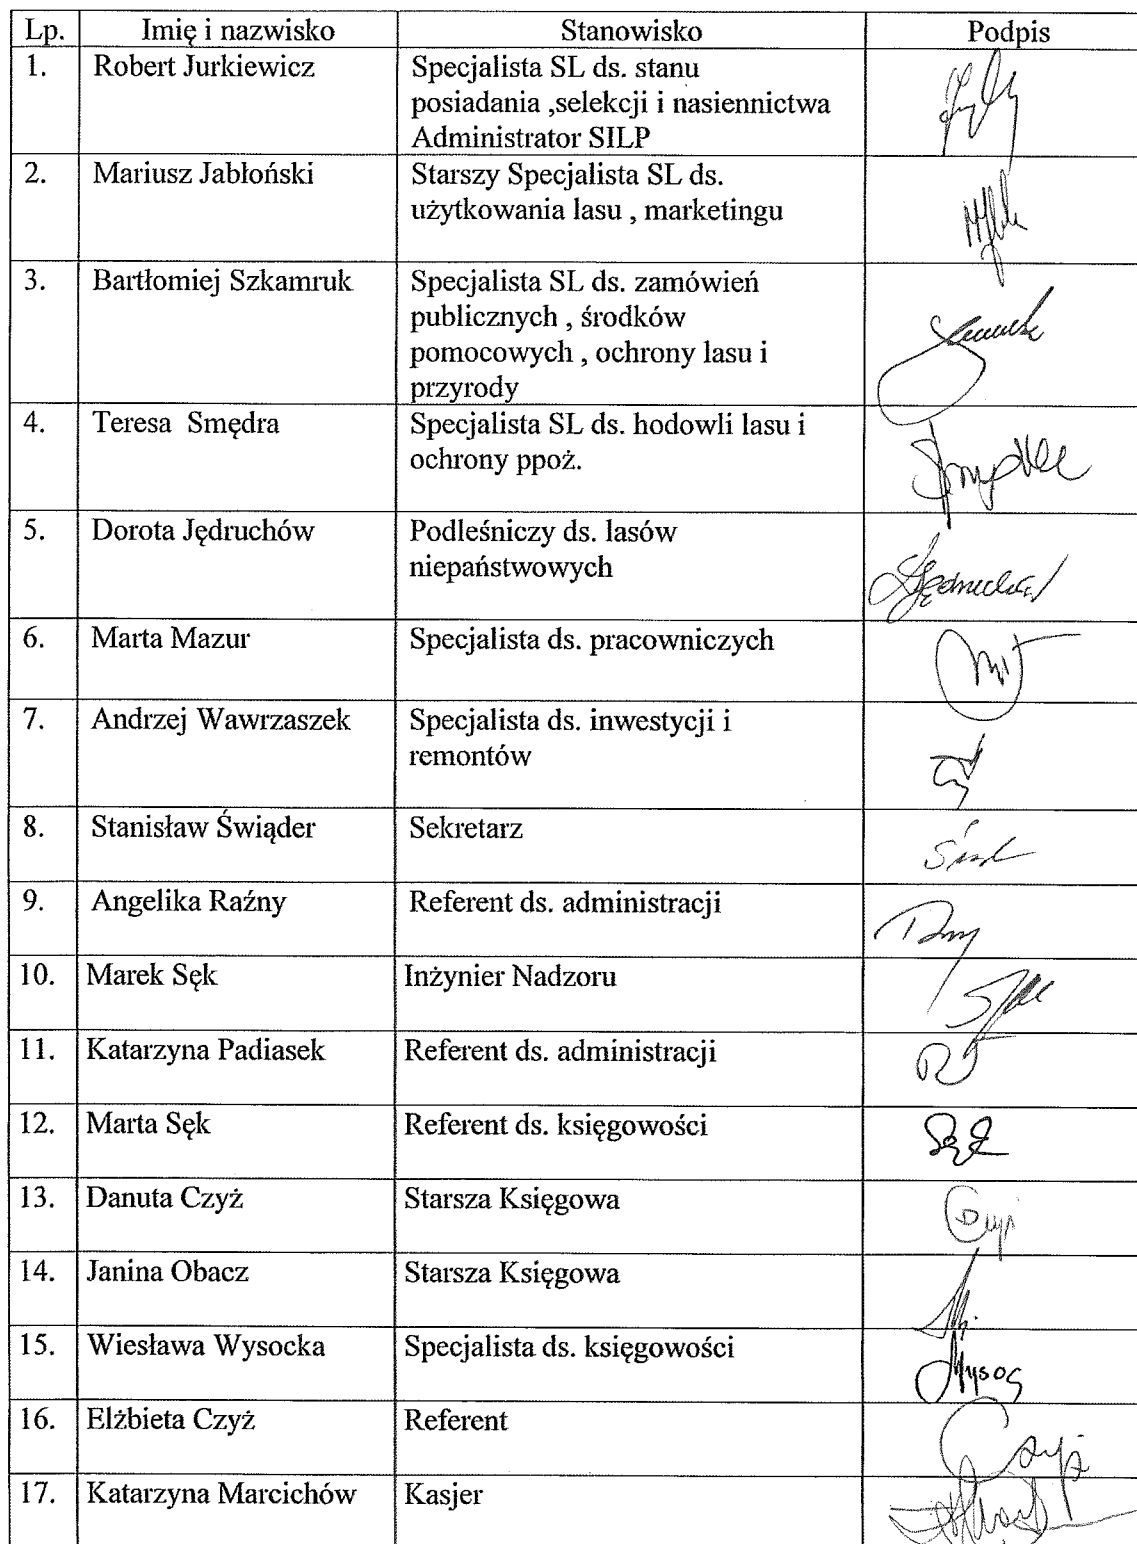 Lp. Imię i nazwisko Stanowisko Podpis
1. Robert Jurkiewicz Specjalista SL ds. stanu
posiadania ,selekcji i nasiennictwa
Administrator SILP
2. Mariusz Jabłoński Starszy Specjalista SL ds.
użytkowania lasu , marketingu
3. Bartłomiej Szkamruk Specjalista SL ds. zamówień
publicznych , środków
pomocowych , ochrony lasu i
przyrody
4. Teresa Smędra Specjalista SL ds. hodowli lasu i
ochrony ppoż.
5. Dorota Jędruchów Podleśniczy ds. lasów
niepaństwowych
6. Marta Mazur Specjalista ds. pracowniczych
7. Andrzej Wawrzaszek Specjalista ds. inwestycji i
remontów
8. Stanisław Świąder Sekretarz
9. Angelika Raźny Referent ds. administracji
10. Marek Sęk Inżynier Nadzoru
11. Katarzyna Padiasek Referent ds. administracji
12. Marta Sęk Referent ds. księgowości
13. Danuta Czyż Starsza Księgowa
14. Janina Obacz Starsza Księgowa
15. Wiesława Wysocka Specjalista ds. księgowości
16. Elżbieta Czyż Referent
17. Katarzyna Marcichów Kasjer